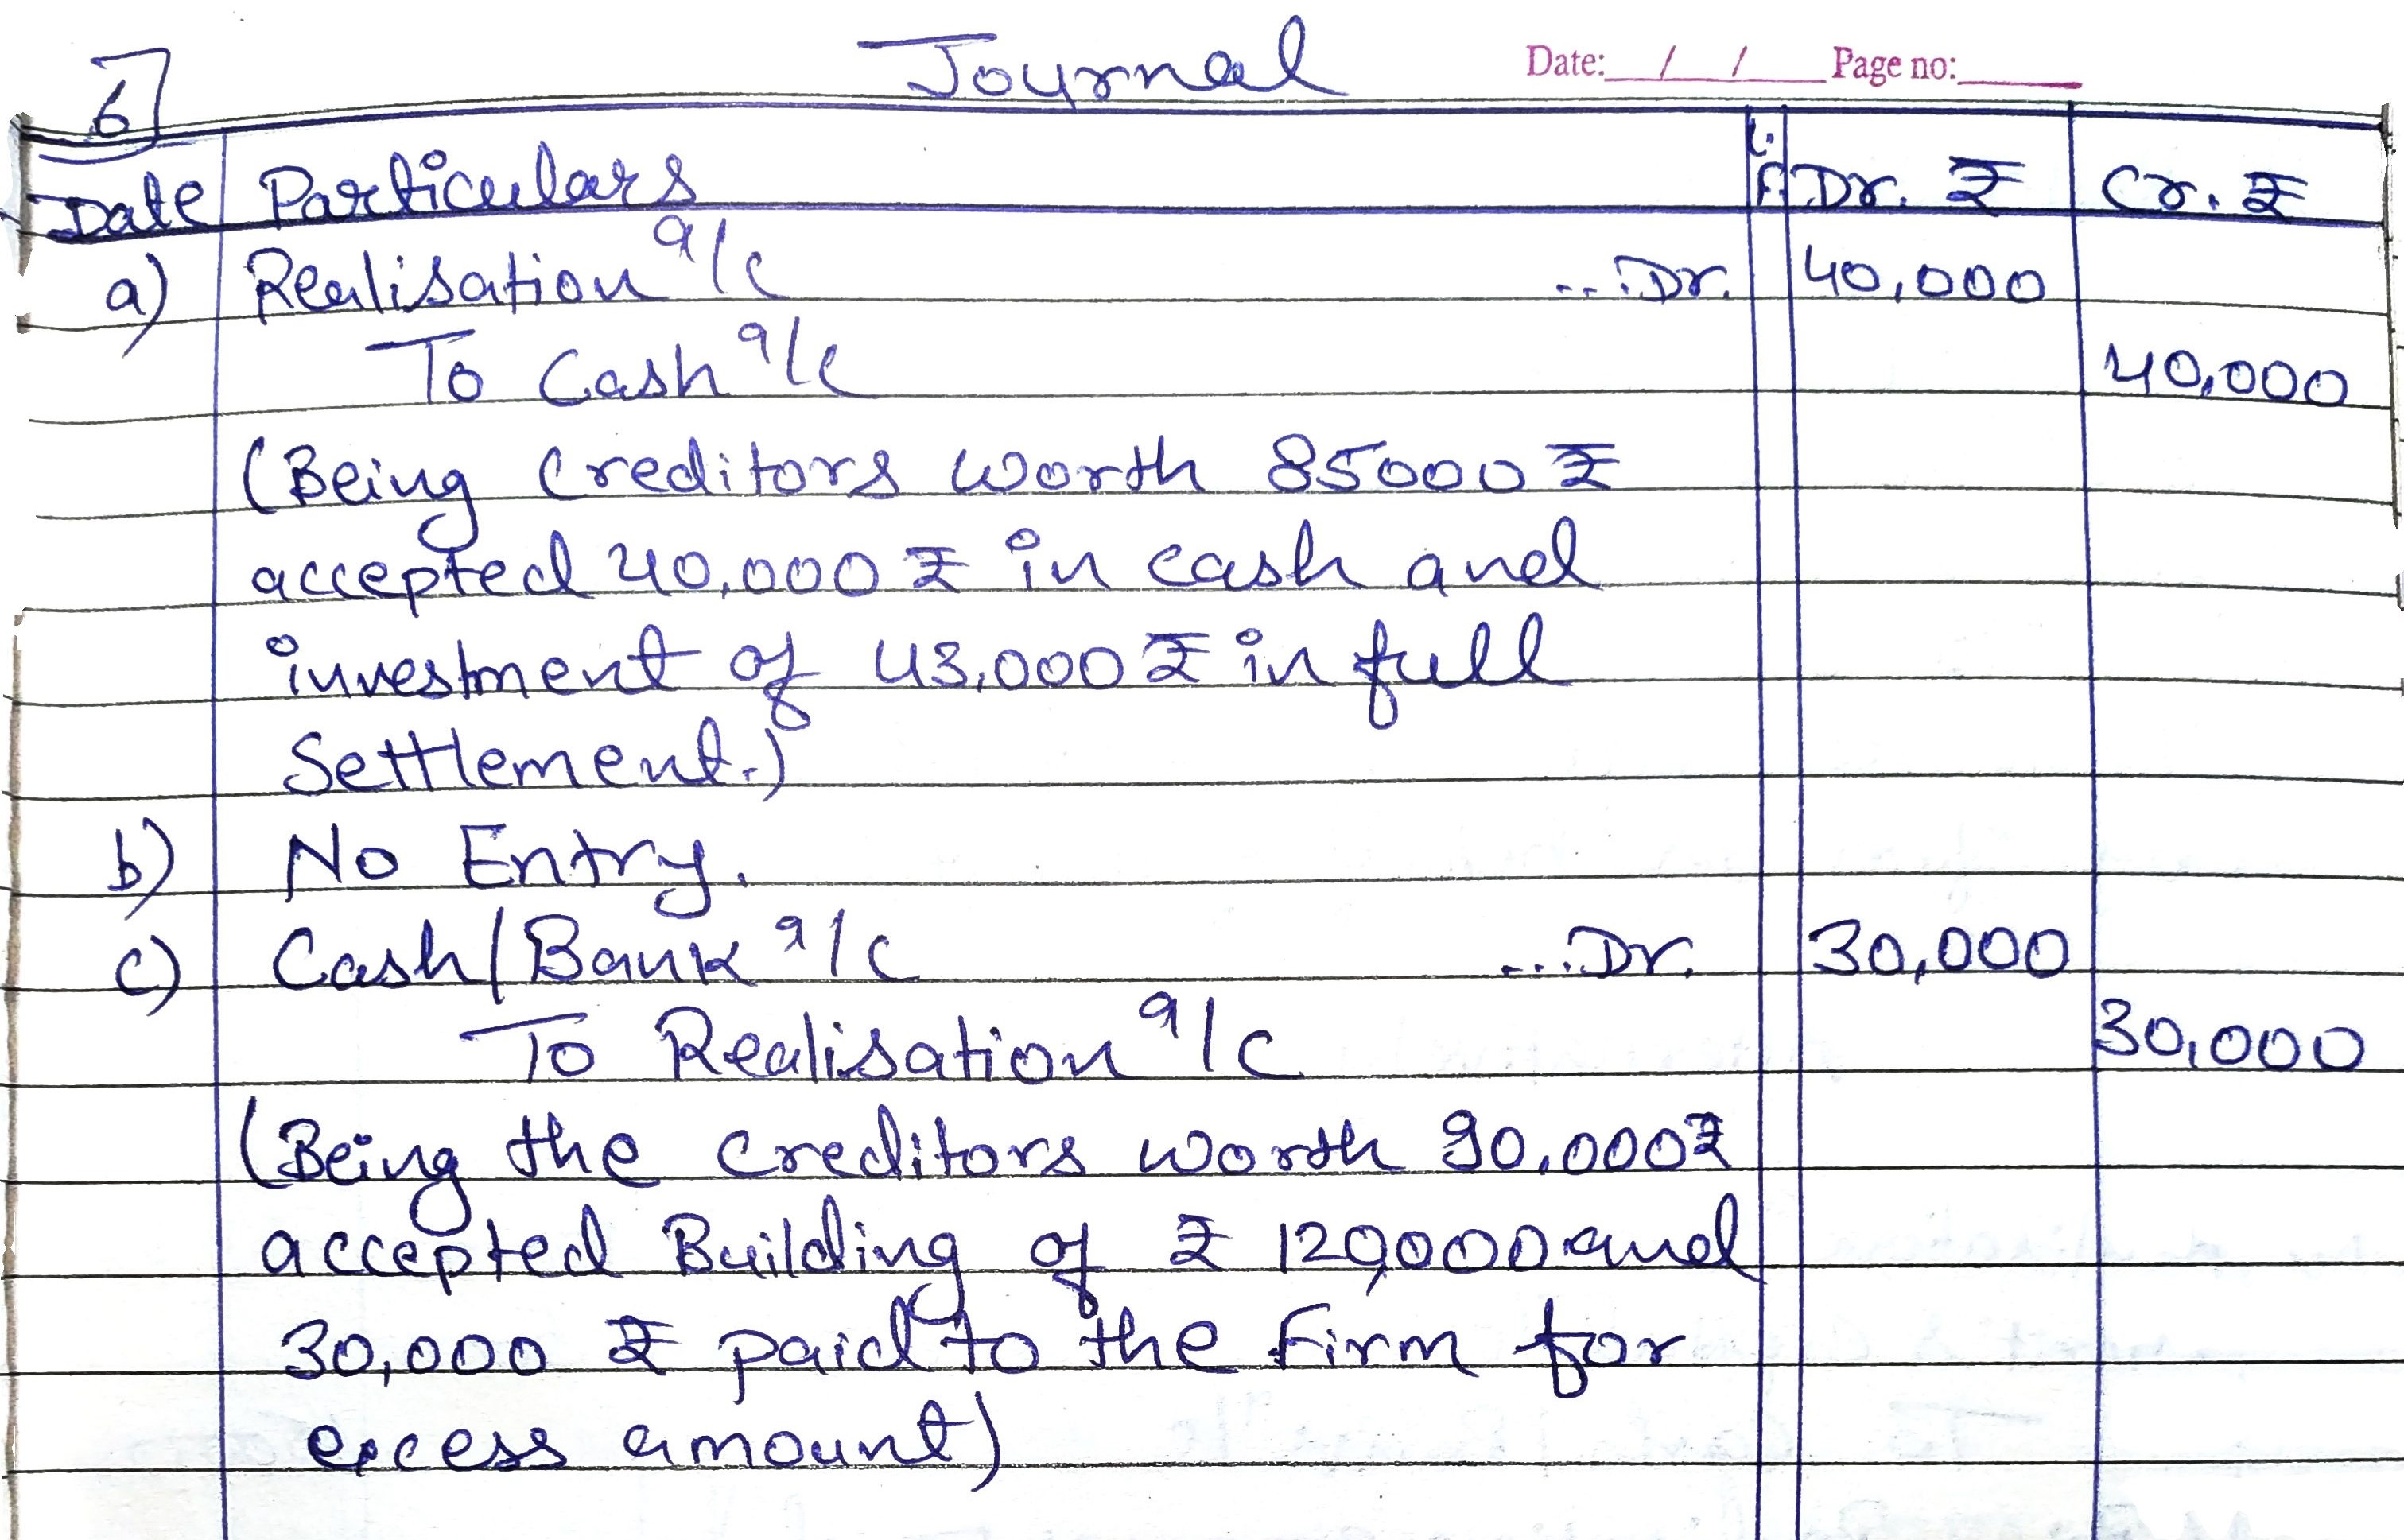 Journal
Date: / / Page no:
6
Date Particulars L.F. Dr. ₹ Cr. ₹
a) Realisation a/c ...Dr. 40,000
To Cash a/c 40,000
(Being Creditors worth 85000 ₹
accepted 40,000 ₹ in cash and
investment of 43,000 ₹ in full
Settlement.)
b) No Entry.
c) Cash/Bank a/c ...Dr. 30,000
To Realisation a/c 30,000
(Being the creditors worth 90,000₹
accepted Building of ₹ 120,000 and
30,000 ₹ paid to the firm for
excess amount)